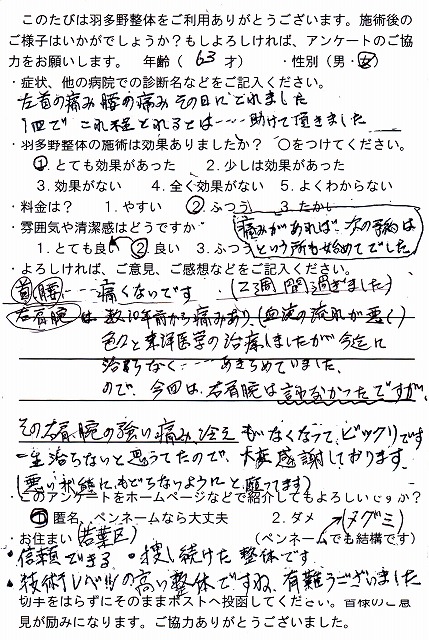 このたびは羽多野整体をご利用ありがとうございます。施術後の
ご様子はいかがでしょうか？もしよろしければ、アンケートのご協
力をお願いします。 年齢（ 63 才） ・性別（男・女）
・症状、他の病院での診断名などをご記入ください。
左首の痛み 腰の痛み その日にとれました
1回で これ程とれるとは……助けて頂きました
・羽多野整体の施術は効果ありましたか？ ○をつけてください。
1. とても効果があった 2. 少しは効果があった
3. 効果がない 4. 全く効果がない 5. よくわからない
・料金は？ 1. やすい 2. ふつう 3. たかい
・雰囲気や清潔感はどうですか
痛みがあれば、次の予約は
1. とても良い 2. 良い 3. ふつう
という所も始めてでした。
・よろしければ、ご意見、ご感想などをご記入ください。
首 腰……痛くないです （2週間過ぎました）
右肩腕は 数10年前から痛みあり、（血液の流れが悪く）
色々と東洋医学の治療しましたが 今迄に
治らなく……あきらめていました。
ので、今回は、右肩腕は 言わなかったですが、
その右肩、腕の強い痛み、冷え もなくなって、ビックリです
一生治らないと思ってたので、大変感謝しております。
（悪い状態に、もどらないようにと 願ってます）
・このアンケートをホームページなどで紹介してもよろしいですか？
1. 匿名、ペンネームなら大丈夫 2. ダメ （メグミ）
お住まい（若葉区） （ペンネームでも結構です）
・信頼できる ・捜し続けた整体です
・技術レベルの高い整体ですね、有難うございました
切手をはらずにそのままポストへ投函してください。皆様のご意
見が励みになります。ご協力ありがとうございました。